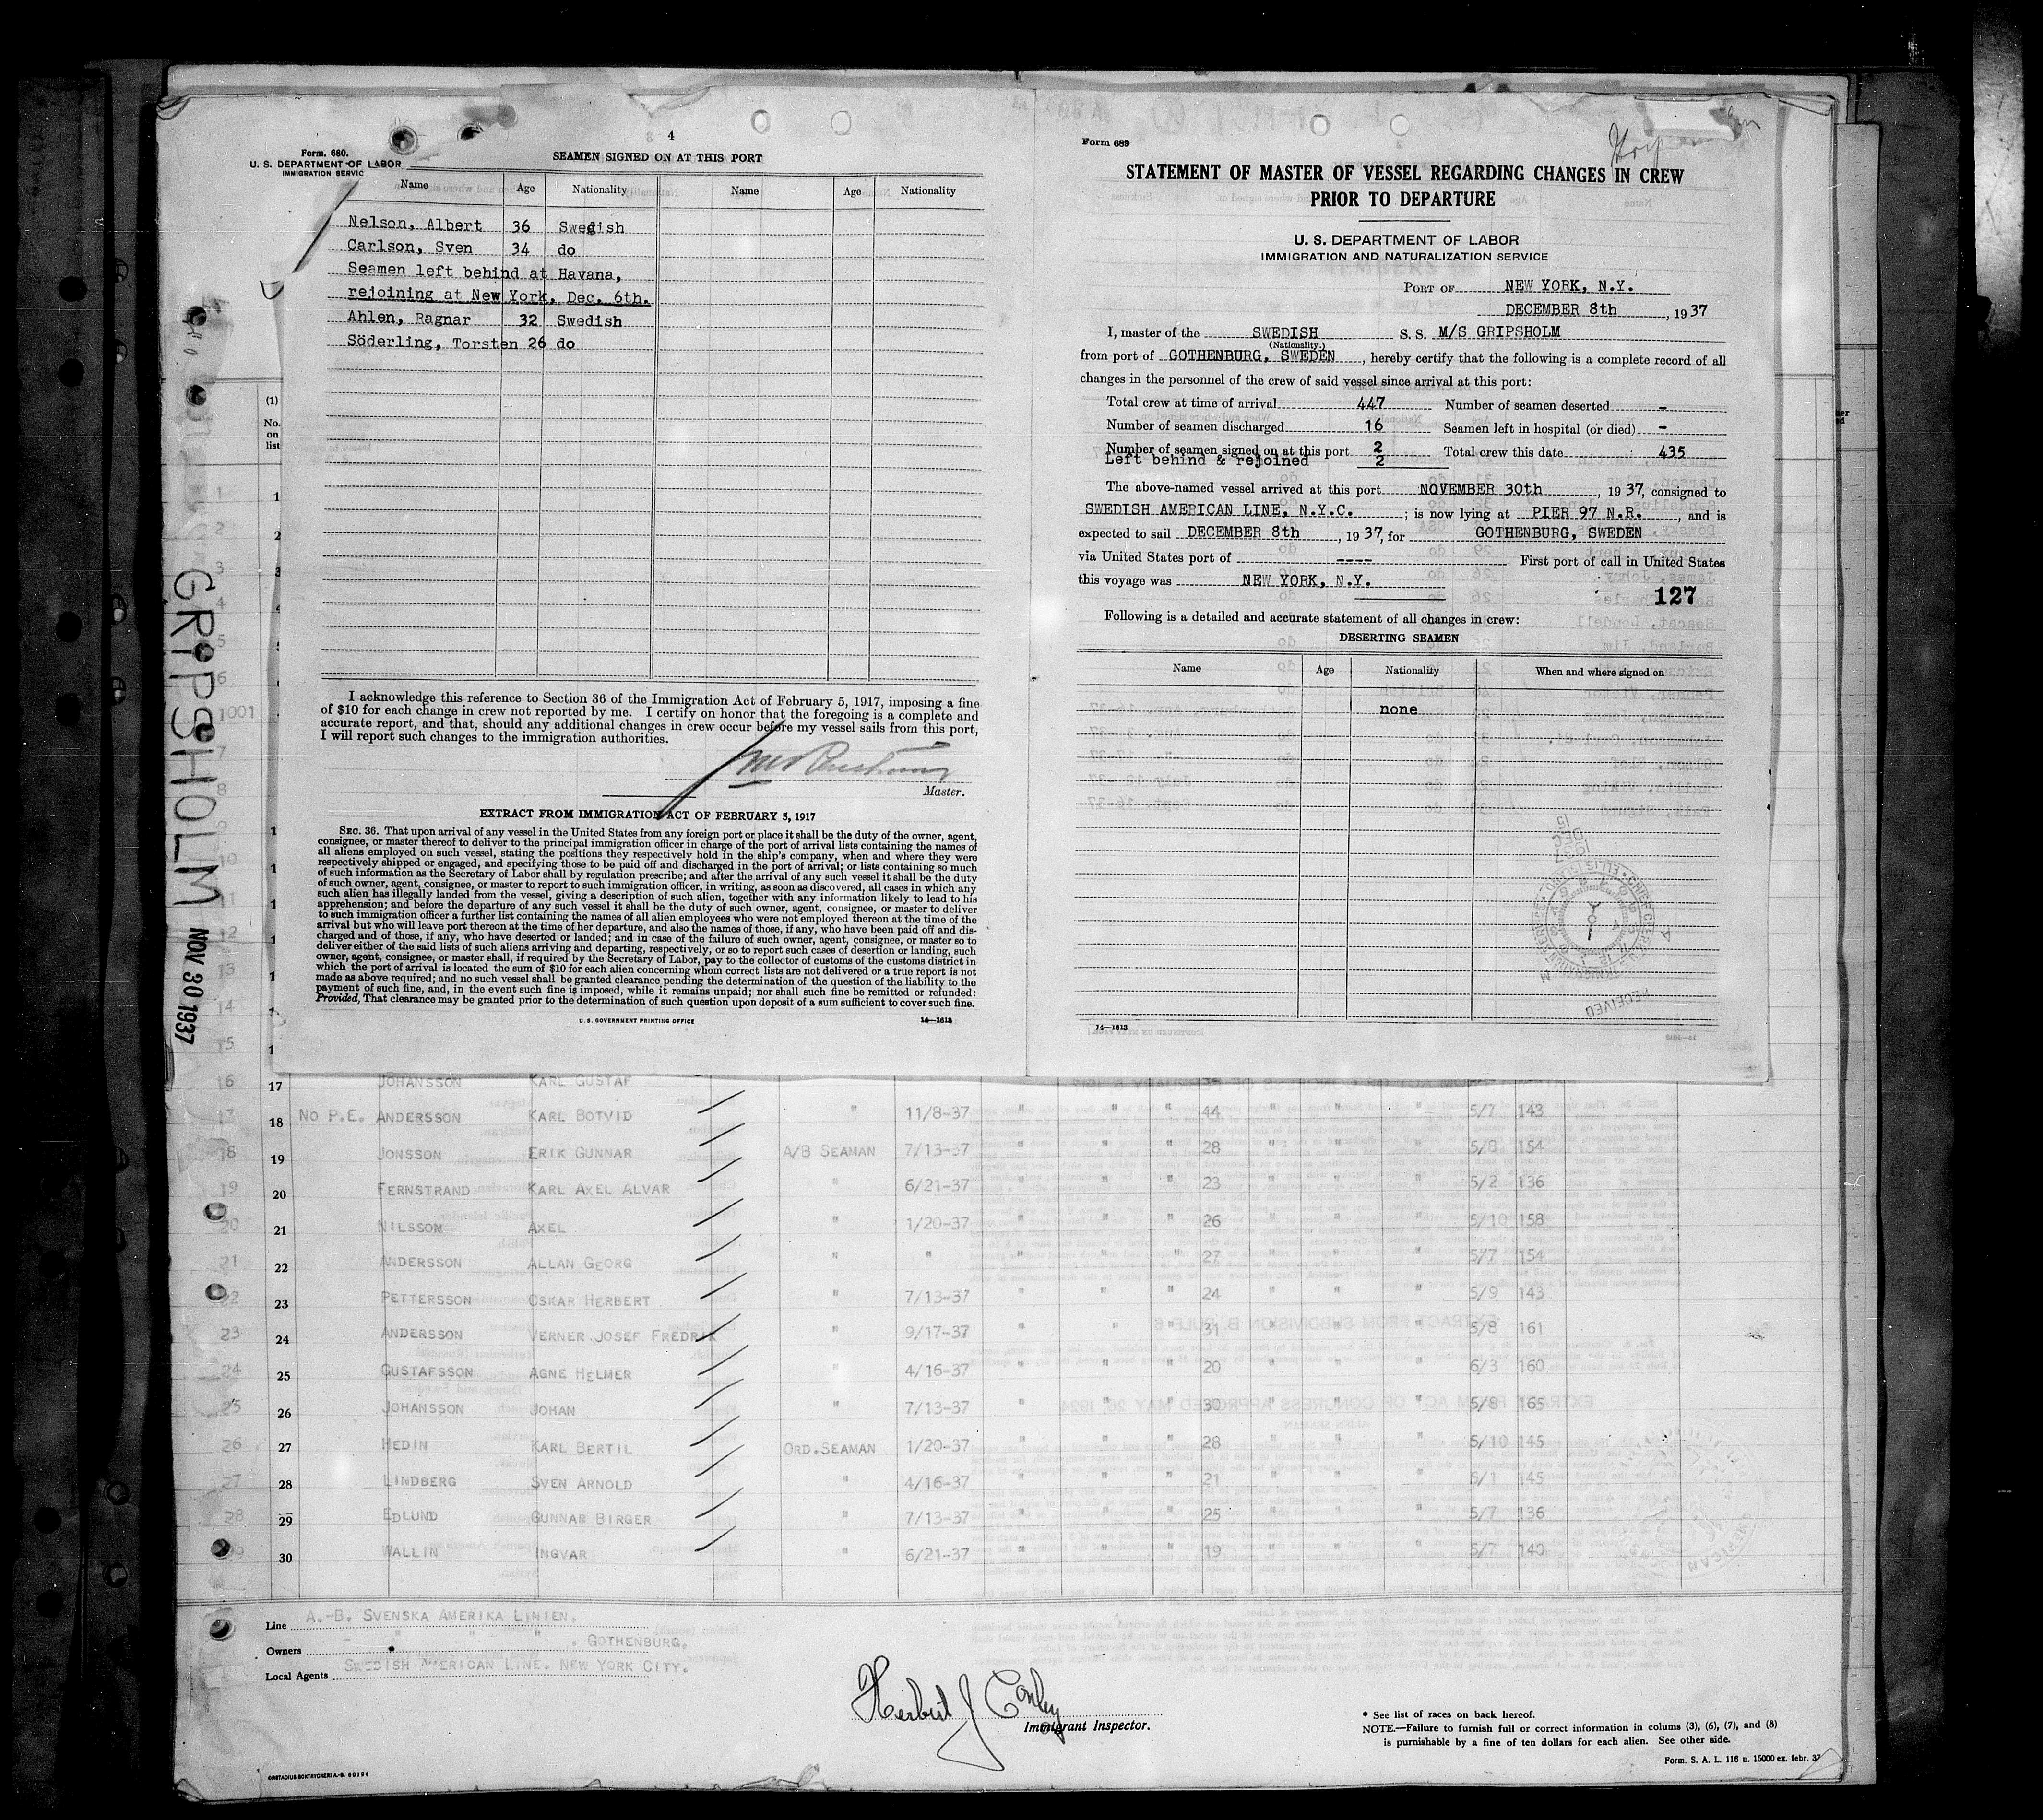 GRIPSHOLM NOV 30 1937
4
Form. 680.
U. S. DEPARTMENT OF LABOR
IMMIGRATION SERVIC
SEAMEN SIGNED ON AT THIS PORT
Name Age Nationality Name Age Nationality
Nelson, Albert 36 Swedish
Carlson, Sven 34 do
Seamen left behind at Havana,
rejoining at New York, Dec. 6th.
Ahlen, Ragnar 32 Swedish
Söderling, Torsten 26 do
I acknowledge this reference to Section 36 of the Immigration Act of February 5, 1917, imposing a fine
of $10 for each change in crew not reported by me. I certify on honor that the foregoing is a complete and
accurate report, and that, should any additional changes in crew occur before my vessel sails from this port,
I will report such changes to the immigration authorities.
Master.
EXTRACT FROM IMMIGRATION ACT OF FEBRUARY 5, 1917
SEC. 36. That upon arrival of any vessel in the United States from any foreign port or place it shall be the duty of the owner, agent,
consignee, or master thereof to deliver to the principal immigration officer in charge of the port of arrival lists containing the names of
all aliens employed on such vessel, stating the positions they respectively hold in the ship's company, when and where they were
respectively shipped or engaged, and specifying those to be paid off and discharged in the port of arrival; or lists containing so much
of such information as the Secretary of Labor shall by regulation prescribe; and after the arrival of any such vessel it shall be the duty
of such owner, agent, consignee, or master to report to such immigration officer, in writing, as soon as discovered, all cases in which any
such alien has illegally landed from the vessel, giving a description of such alien, together with any information likely to lead to his
apprehension; and before the departure of any such vessel it shall be the duty of such owner, agent, consignee, or master to deliver
to such immigration officer a further list containing the names of all alien employees who were not employed thereon at the time of the
arrival but who will leave port thereon at the time of her departure, and also the names of those, if any, who have been paid off and dis-
charged and of those, if any, who have deserted or landed; and in case of the failure of such owner, agent, consignee, or master so to
deliver either of the said lists of such aliens arriving and departing, respectively, or so to report such cases of desertion or landing, such
owner, agent, consignee, or master shall, if required by the Secretary of Labor, pay to the collector of customs of the customs district in
which the port of arrival is located the sum of $10 for each alien concerning whom correct lists are not delivered or a true report is not
made as above required; and no such vessel shall be granted clearance pending the determination of the question of the liability to the
payment of such fine, and, in the event such fine is imposed, while it remains unpaid; nor shall such fine be remitted or refunded:
Provided, That clearance may be granted prior to the determination of such question upon deposit of a sum sufficient to cover such fine.
U. S. GOVERNMENT PRINTING OFFICE 14—1613
Form 689
STATEMENT OF MASTER OF VESSEL REGARDING CHANGES IN CREW
PRIOR TO DEPARTURE
U. S. DEPARTMENT OF LABOR
IMMIGRATION AND NATURALIZATION SERVICE
PORT OF NEW YORK, N.Y.
DECEMBER 8th, 1937
I, master of the SWEDISH S. S. M/S GRIPSHOLM
(Nationality.)
from port of GOTHENBURG, SWEDEN, hereby certify that the following is a complete record of all
changes in the personnel of the crew of said vessel since arrival at this port:
Total crew at time of arrival 447 Number of seamen deserted -
Number of seamen discharged 16 Seamen left in hospital (or died) -
Number of seamen signed on at this port 2 Total crew this date 435
Left behind & rejoined 2
The above-named vessel arrived at this port NOVEMBER 30th, 1937, consigned to
SWEDISH AMERICAN LINE, N.Y.C. ; is now lying at PIER 97 N.R., and is
expected to sail DECEMBER 8th, 1937, for GOTHENBURG, SWEDEN
via United States port of ---- First port of call in United States
this voyage was NEW YORK, N.Y.
127
Following is a detailed and accurate statement of all changes in crew:
DESERTING SEAMEN
Name Age Nationality When and where signed on
none
14—1613
(1)
No.
on
list
16 17 JOHANSSON KARL GUSTAF
17 18 No P.E. ANDERSSON KARL BOTVID " 11/8-37 " " " 44 " " " 5/7 143
18 19 JONSSON ERIK GUNNAR A/B SEAMAN 7/13-37 " " " 28 " " " 5/8 154
19 20 FERNSTRAND KARL AXEL ALVAR " 6/21-37 " " " 23 " " " 5/2 136
20 21 NILSSON AXEL " 1/20-37 " " " 26 " " " 5/10 158
21 22 ANDERSSON ALLAN GEORG " " " " " 27 " " " 5/7 154
22 23 PETTERSSON OSKAR HERBERT " 7/13-37 " " " 24 " " " 5/9 143
23 24 ANDERSSON VERNER JOSEF FREDRIK " 9/17-37 " " " 31 " " " 5/8 161
24 25 GUSTAFSSON AGNE HELMER " 4/16-37 " " " 20 " " " 6/3 160
25 26 JOHANSSON JOHAN " 7/13-37 " " " 30 " " " 5/8 165
26 27 HEDIN KARL BERTIL ORD. SEAMAN 1/20-37 " " " 28 " " " 5/10 145
27 28 LINDBERG SVEN ARNOLD " 4/16-37 " " " 21 " " " 5/1 145
28 29 EDLUND GUNNAR BIRGER " 7/13-37 " " " 25 " " " 5/7 136
29 30 WALLIN INGVAR " 6/21-37 " " " 19 " " " 5/7 140
Line A.-B. SVENSKA AMERIKA LINIEN.
Owners " " " . GOTHENBURG.
Local Agents SWEDISH AMERICAN LINE. NEW YORK CITY.
Herbert J Conley
Immigrant Inspector.
* See list of races on back hereof.
NOTE.—Failure to furnish full or correct information in colums (3), (6), (7), and (8)
is punishable by a fine of ten dollars for each alien. See other side.
Form. S. A. L. 116 u. 15000 ex. febr. 37
ORSTADIUS BOKTRYCKERI A.-B. 60194